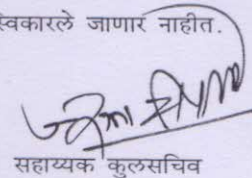 स्विकारले जाणार नाहीत.
सहाय्यक कुलसचिव